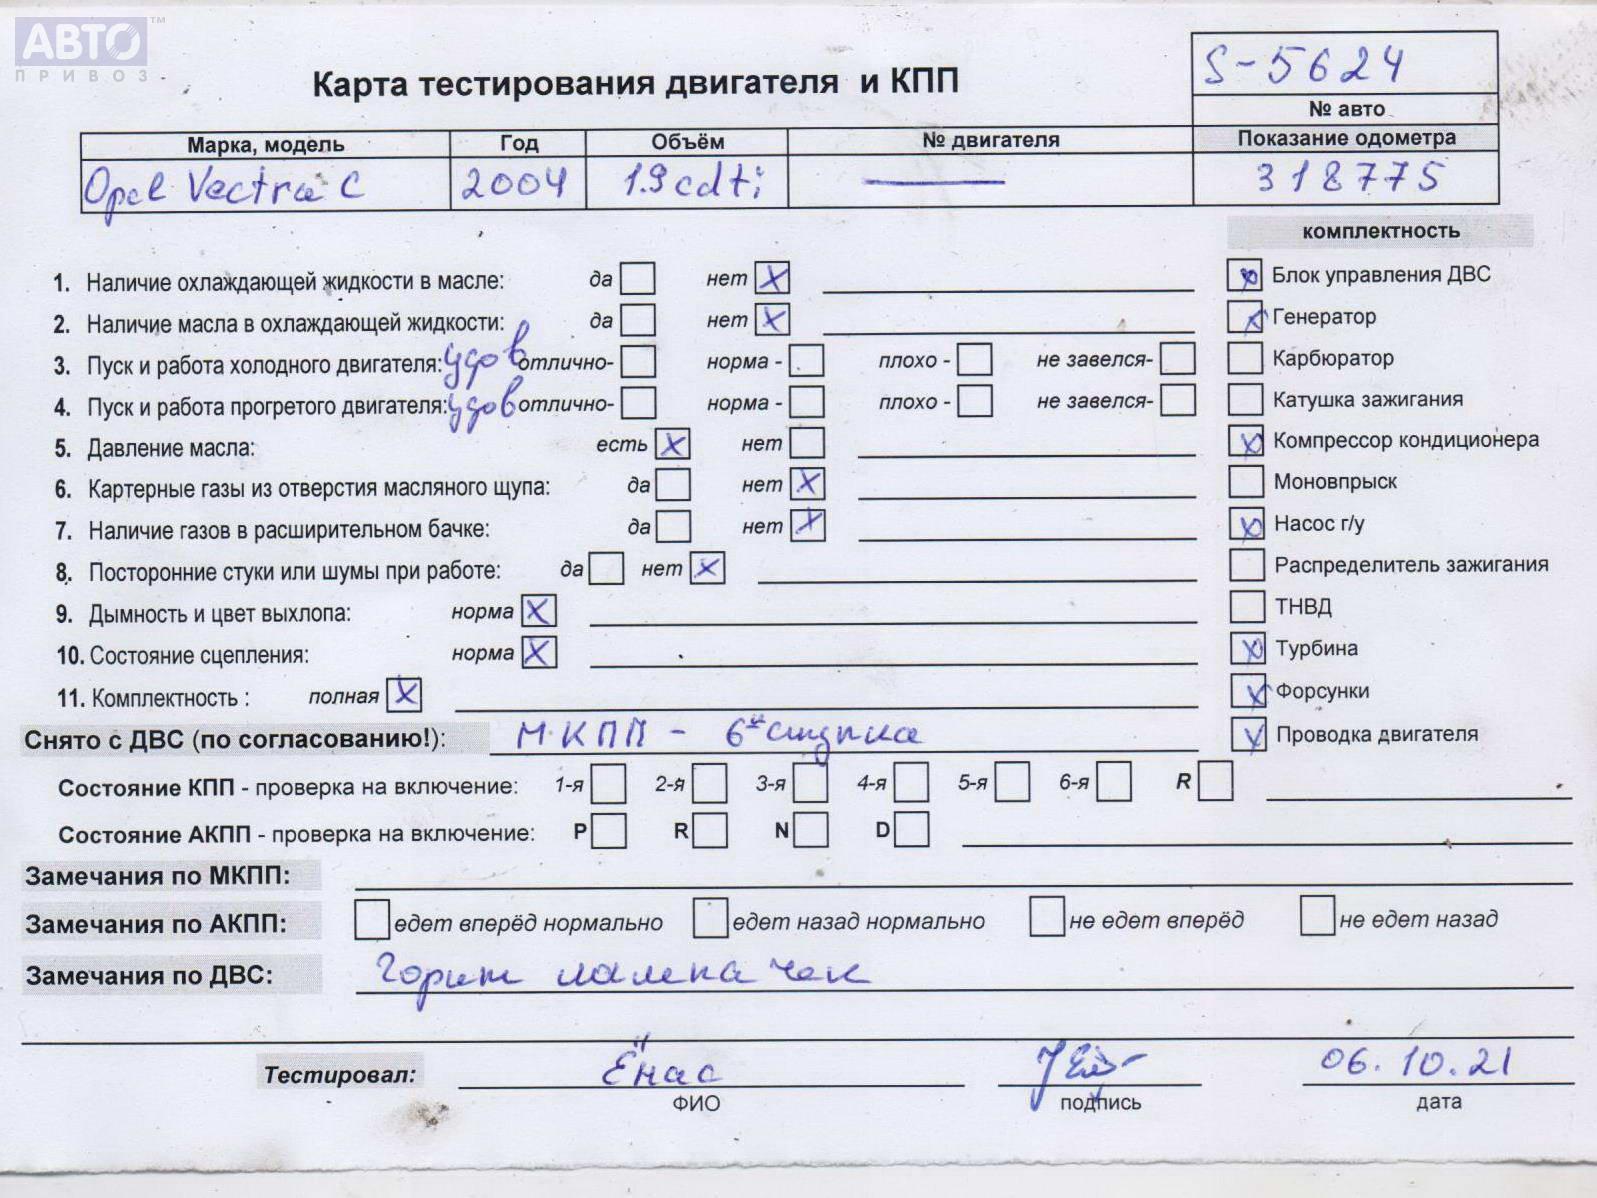 АВТО™
ПРИВОЗ
Карта тестирования двигателя и КПП
S-5624
№ авто
Марка, модель Год Объём № двигателя Показание одометра
Opel Vectra C 2004 1.9 cdti 318775
комплектность
1. Наличие охлаждающей жидкости в масле: да нет X
Блок управления ДВС
2. Наличие масла в охлаждающей жидкости: да нет X
Генератор
3. Пуск и работа холодного двигателя: удов отлично- норма - плохо - не завелся-
Карбюратор
4. Пуск и работа прогретого двигателя: удов отлично- норма - плохо - не завелся-
Катушка зажигания
5. Давление масла: есть X нет
Компрессор кондиционера
6. Картерные газы из отверстия масляного щупа: да нет X
Моновпрыск
7. Наличие газов в расширительном бачке: да нет X
Насос г/у
8. Посторонние стуки или шумы при работе: да нет X
Распределитель зажигания
9. Дымность и цвет выхлопа: норма X
ТНВД
10. Состояние сцепления: норма X
Турбина
11. Комплектность : полная X
Форсунки
Снято с ДВС (по согласованию!): МКПП - 6й ступка
Проводка двигателя
Состояние КПП - проверка на включение: 1-я 2-я 3-я 4-я 5-я 6-я R
Состояние АКПП - проверка на включение: P R N D
Замечания по МКПП:
Замечания по АКПП: едет вперёд нормально едет назад нормально не едет вперёд не едет назад
Замечания по ДВС: Горит лампа чек
Тестировал: Ёнас 06.10.21
ФИО подпись дата